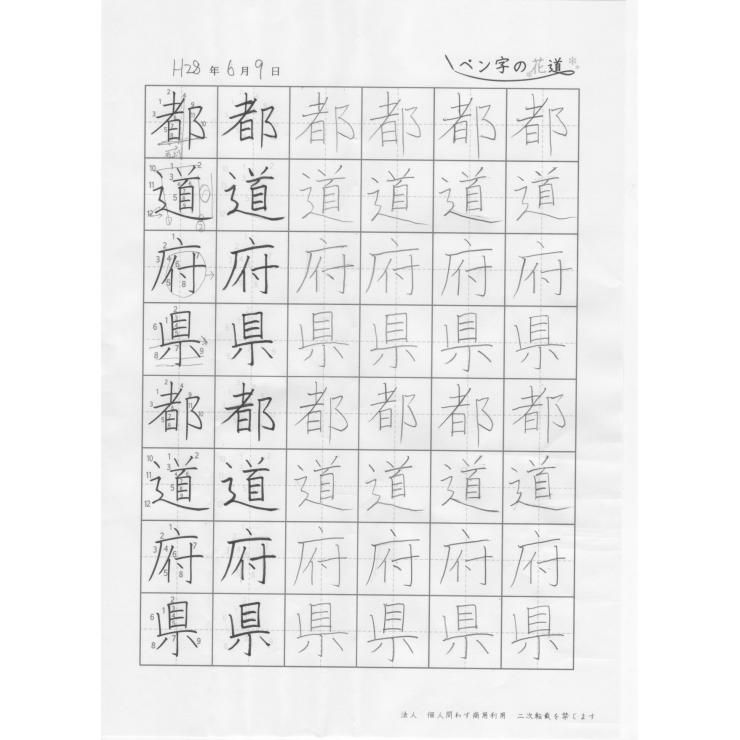 H28年6月9日
ペン字の花道
都都都都都都
道道道道道道
府府府府府府
県県県県県県
都都都都都都
道道道道道道
府府府府府府
県県県県県県
法人 個人問わず商用利用 二次転載を禁じます